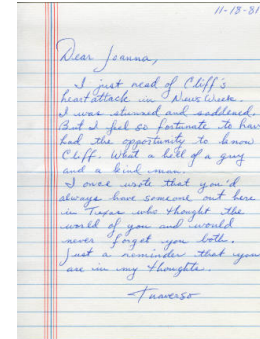 11-18-81
Dear Joanna,
I just read of Cliff's
heart attack in News Week.
I was stunned and saddened.
But I feel so fortunate to have
had the opportunity to know
Cliff. What a hell of a guy
and a kind man.
I once wrote that you'd
always have someone out here
in Texas who thought the
world of you and would
never forget you both.
Just a reminder that you
are in my thoughts.